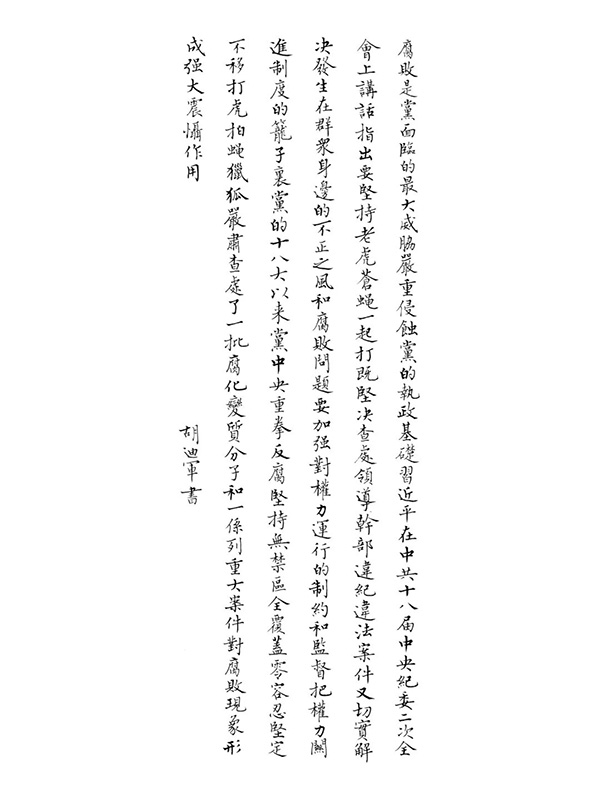 腐敗是黨面臨的最大威脇嚴重侵蝕黨的執政基礎習近平在中共十八届中央紀委二次全
會上講話指出要堅持老虎蒼蠅一起打既堅决查處領導幹部違紀違法案件又切實解
决發生在群衆身邊的不正之風和腐敗問題要加强對權力運行的制約和監督把權力關
進制度的籠子裏黨的十八大以来黨中央重拳反腐堅持無禁區全覆蓋零容忍堅定
不移打虎拍蠅獵狐嚴肅查處了一批腐化變質分子和一係列重大案件對腐敗現象形
成强大震懾作用
胡迪軍書